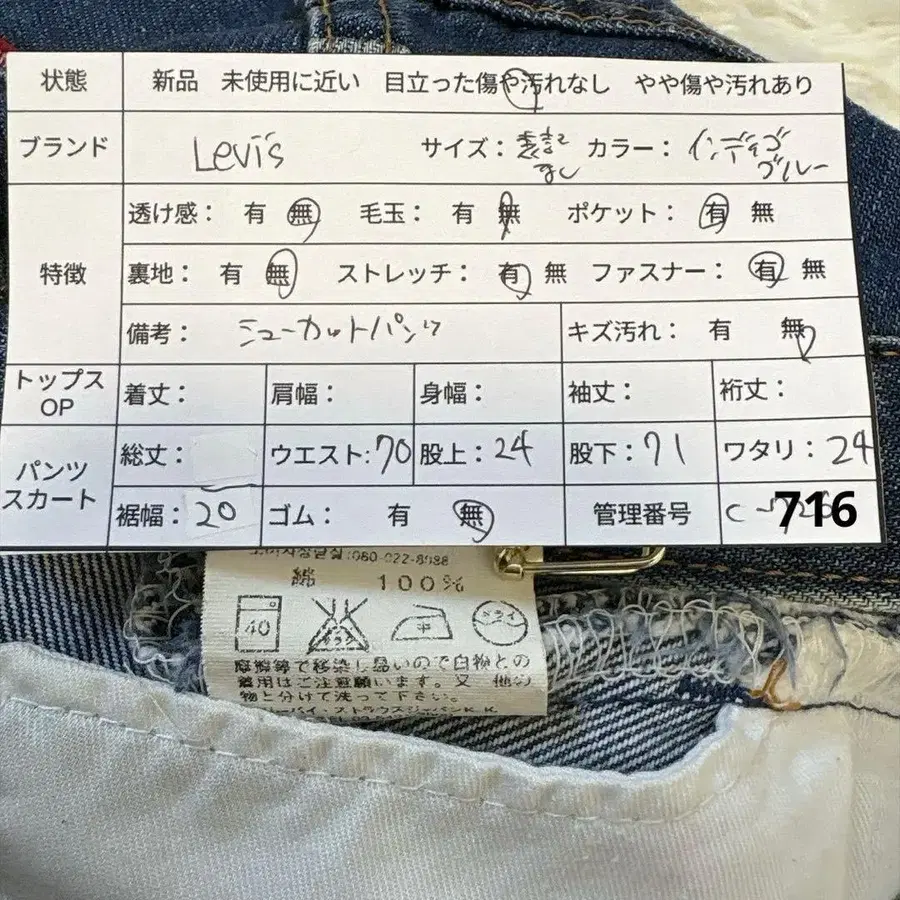 状態 新品 未使用に近い 目立った傷や汚れなし やや傷や汚れあり
ブランド Levi's サイズ: 表記なし カラー: インディゴブルー
特徴
透け感: 有 無 毛玉: 有 無 ポケット: 有 無
裏地: 有 無 ストレッチ: 有 無 ファスナー: 有 無
備考: ニューカットパンツ キズ汚れ: 有 無
トップス OP 着丈: 肩幅: 身幅: 袖丈: 裄丈:
パンツ スカート
総丈: ウエスト:70 股上: 24 股下: 71 ワタリ: 24
裾幅: 20 ゴム: 有 無 管理番号 C- 716
:080-022-8988
綿 100%
40
中
摩擦等で移染し易いので白物との
着用はご注意願います。又 他の
物と分けて洗って下さい。
ストラウスジャパンK.K.